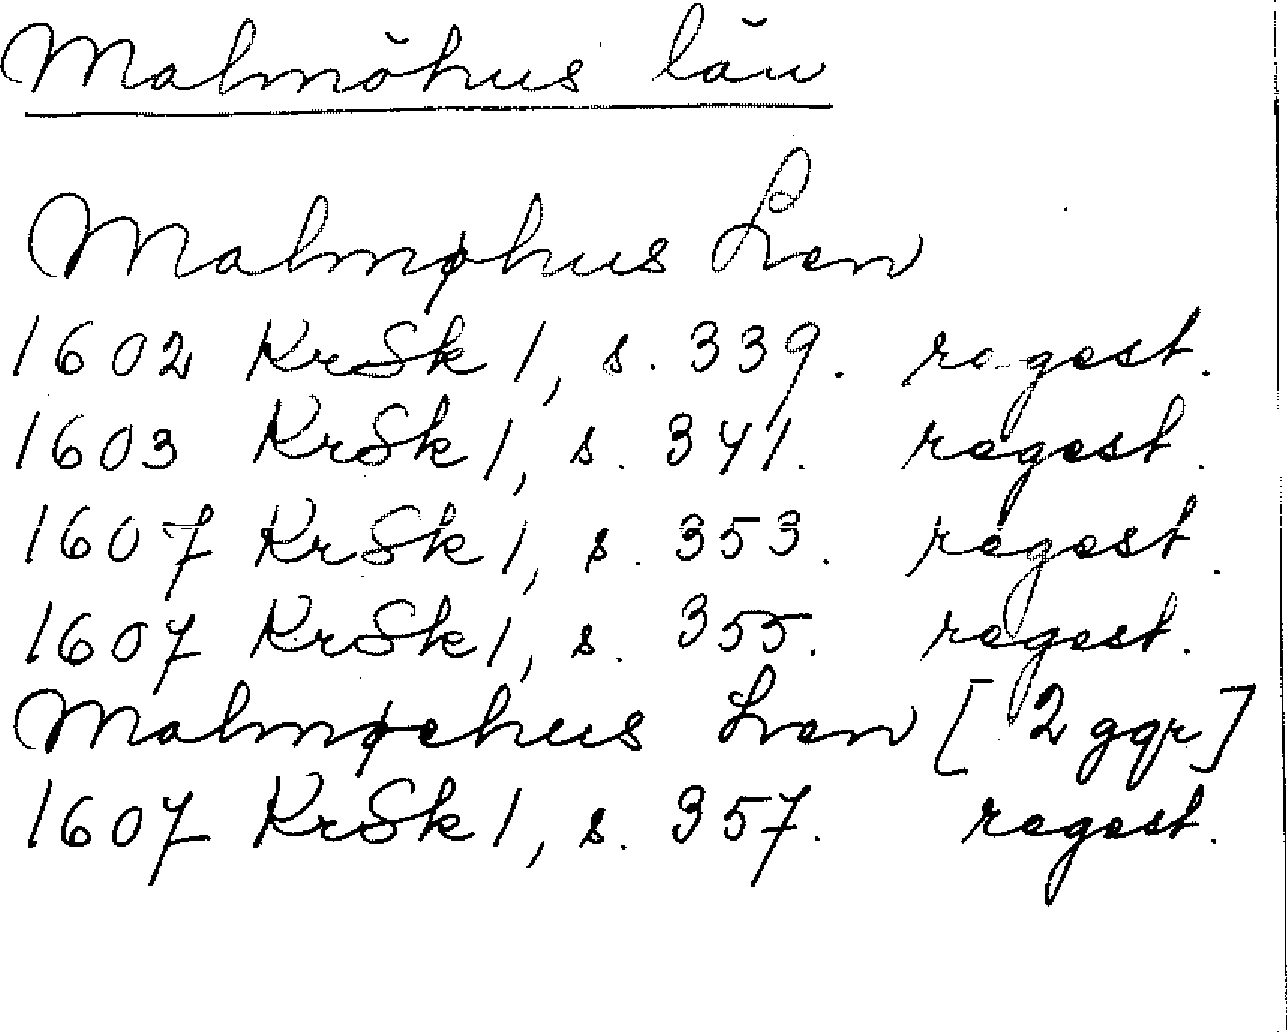 Malmöhus län
Malmøhus Len
1602 KrSk 1, s. 339. regest.
1603 KrSk 1, s. 341. regest.
1607 KrSk 1, s. 353. regest.
1607 KrSk 1, s. 355. regest.
Malmøehus Len [2 ggr]
1607 KrSk 1, s. 357. regest.